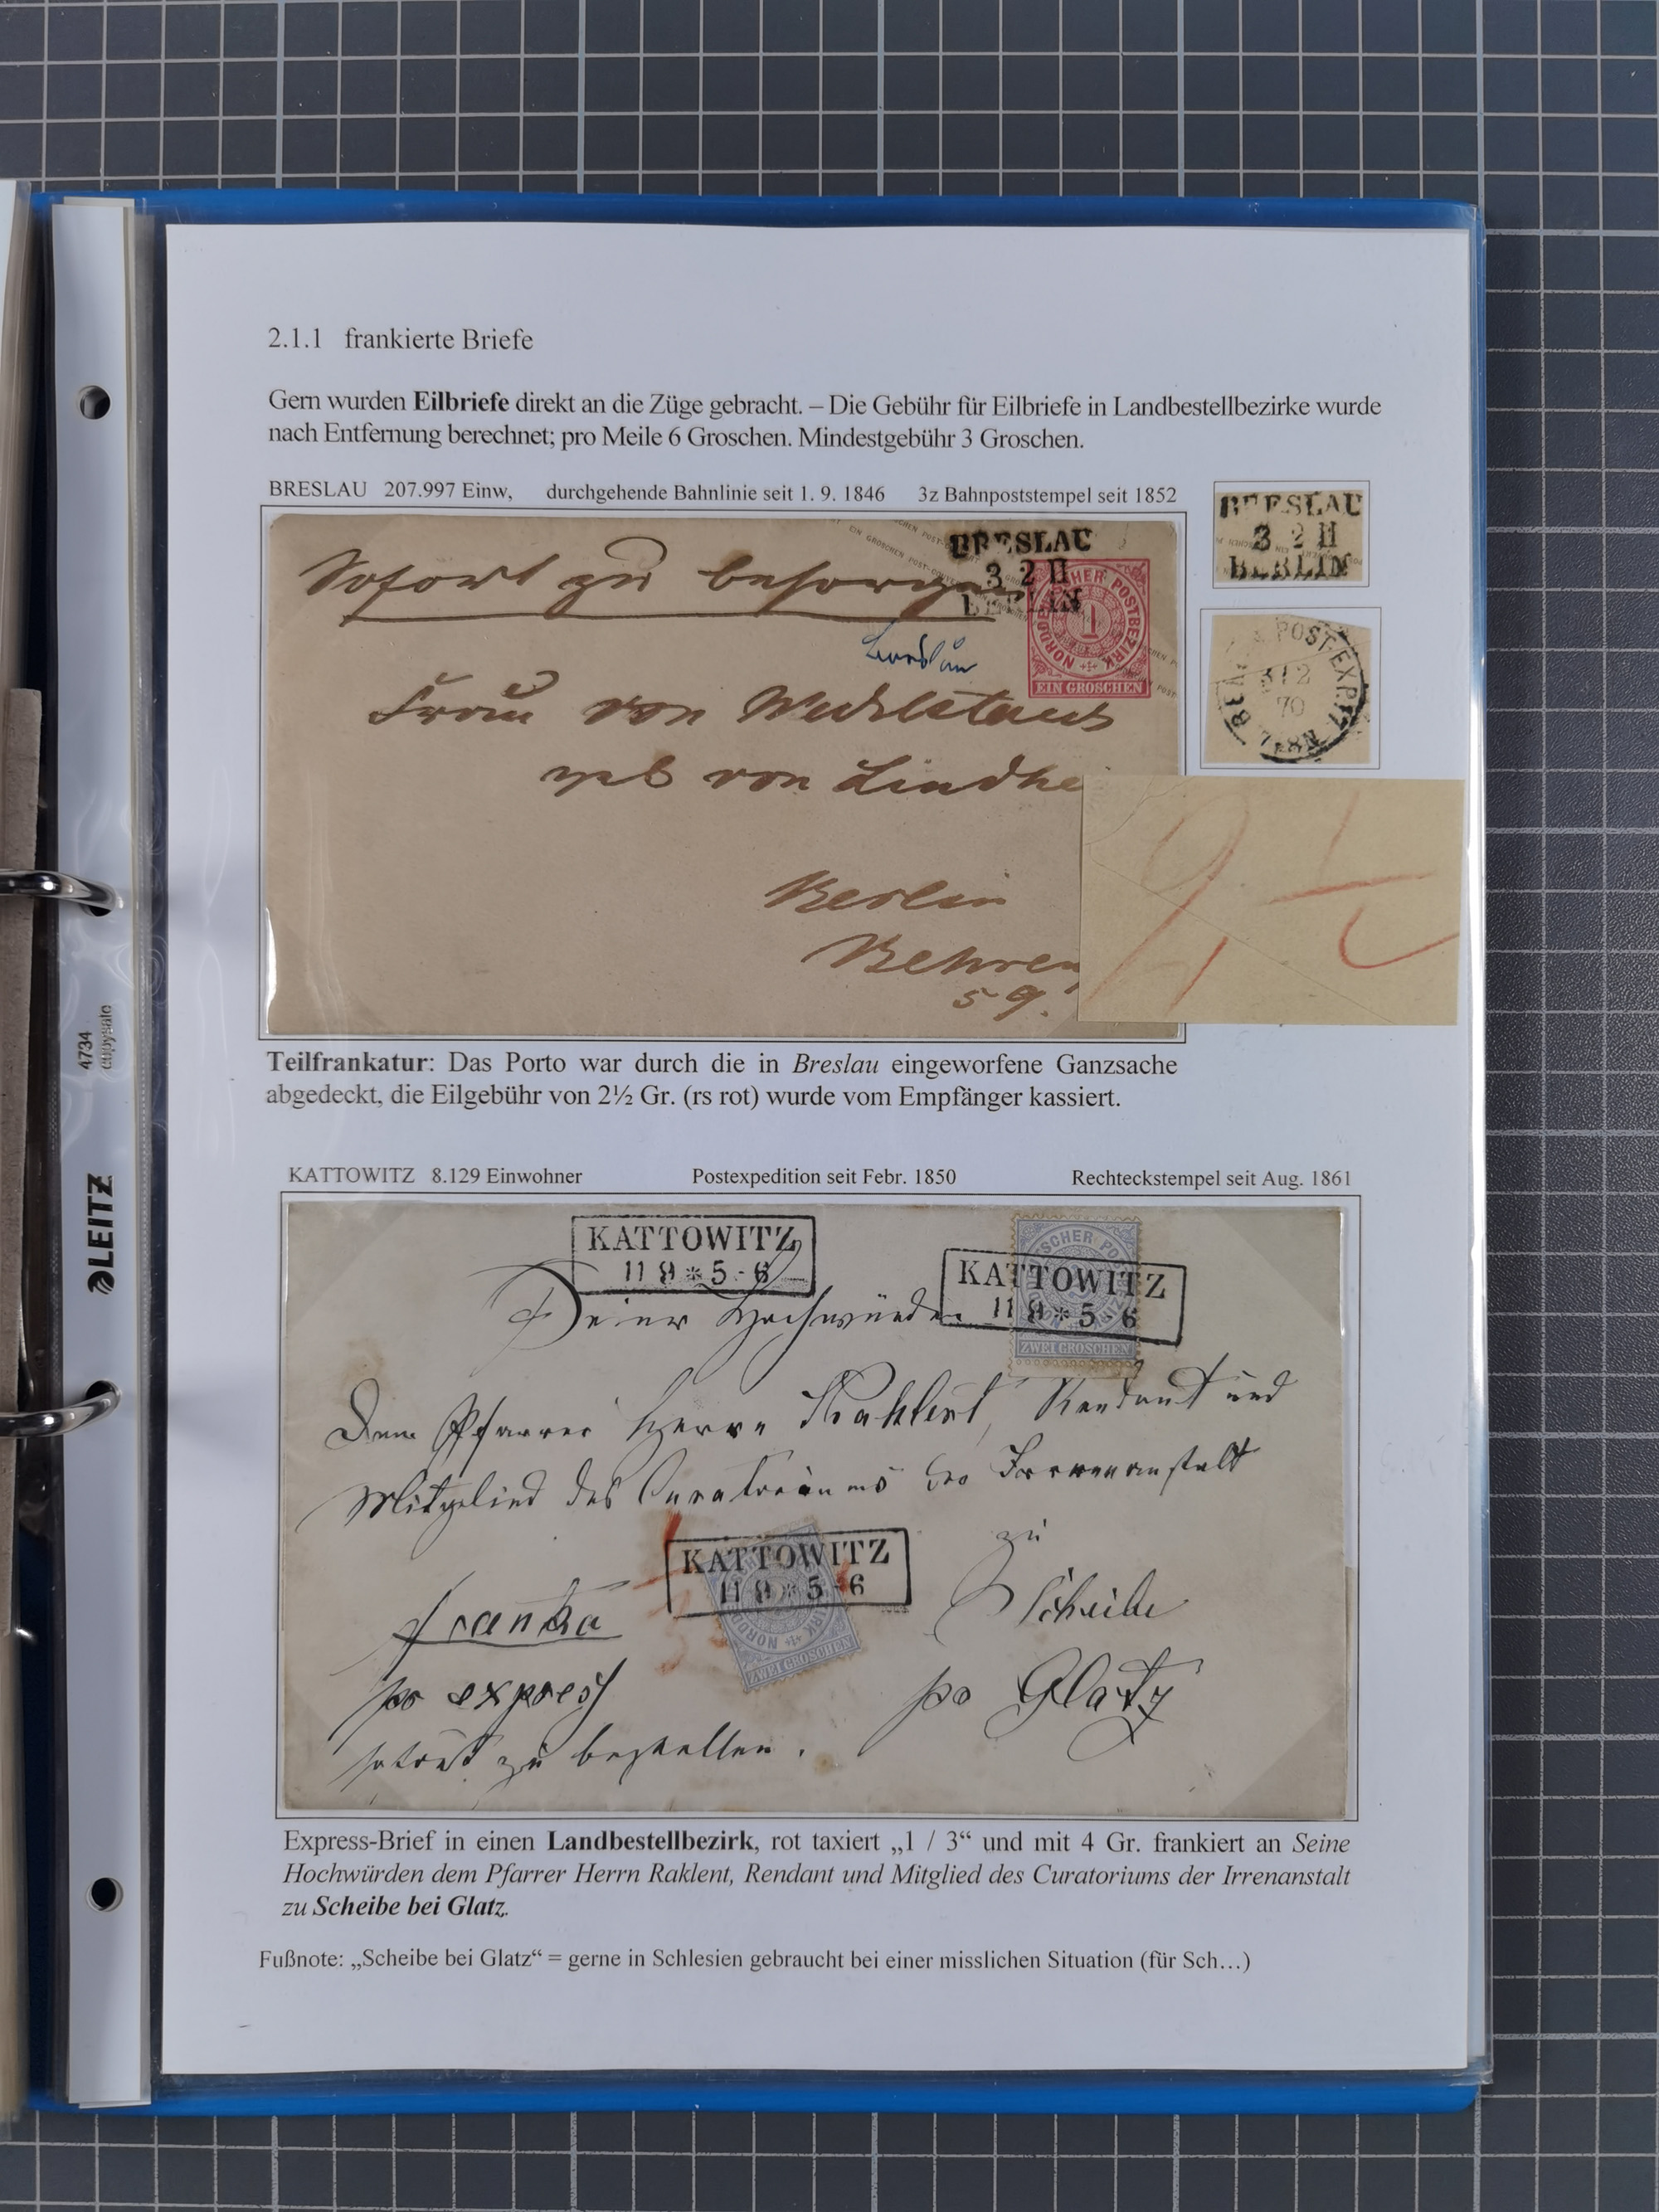 2.1.1 frankierte Briefe
Gern wurden Eilbriefe direkt an die Züge gebracht. – Die Gebühr für Eilbriefe in Landbestellbezirke wurde
nach Entfernung berechnet; pro Meile 6 Groschen. Mindestgebühr 3 Groschen.
BRESLAU 207.997 Einw, durchgehende Bahnlinie seit 1. 9. 1846 3z Bahnpoststempel seit 1852
BRESLAU
3 2 II
BERLIN
Sofort zu besorgen
NORDDEUTSCHER POSTBEZIRK
1
EIN GROSCHEN
Breslau
Frau von
geb von Lindhe
Berlin
Behren
59.
BRESLAU
3 2 II
BERLIN
POST-EXP.
3 12
70
2 1/2
Teilfrankatur: Das Porto war durch die in Breslau eingeworfene Ganzsache
abgedeckt, die Eilgebühr von 2½ Gr. (rs rot) wurde vom Empfänger kassiert.
KATTOWITZ 8.129 Einwohner Postexpedition seit Febr. 1850 Rechteckstempel seit Aug. 1861
KATTOWITZ
11 9 * 5-6
KATTOWITZ
11 9 * 5-6
ZWEI GROSCHEN
Seiner Hochwürden
Dem Pfarrer Herrn Rahlert, Rendant und
Mitglied des Curatoriums der Irrenanstalt
zu
KATTOWITZ
11 9 * 5-6
NORDD
ZIRK
ZWEI GROSCHEN
Scheibe
franko
po express
po Glatz
sofort zu bestellen.
Express-Brief in einen Landbestellbezirk, rot taxiert „1 / 3“ und mit 4 Gr. frankiert an Seine
Hochwürden dem Pfarrer Herrn Raklent, Rendant und Mitglied des Curatoriums der Irrenanstalt
zu Scheibe bei Glatz.
Fußnote: „Scheibe bei Glatz“ = gerne in Schlesien gebraucht bei einer misslichen Situation (für Sch…)
LEITZ
4734
copysafe